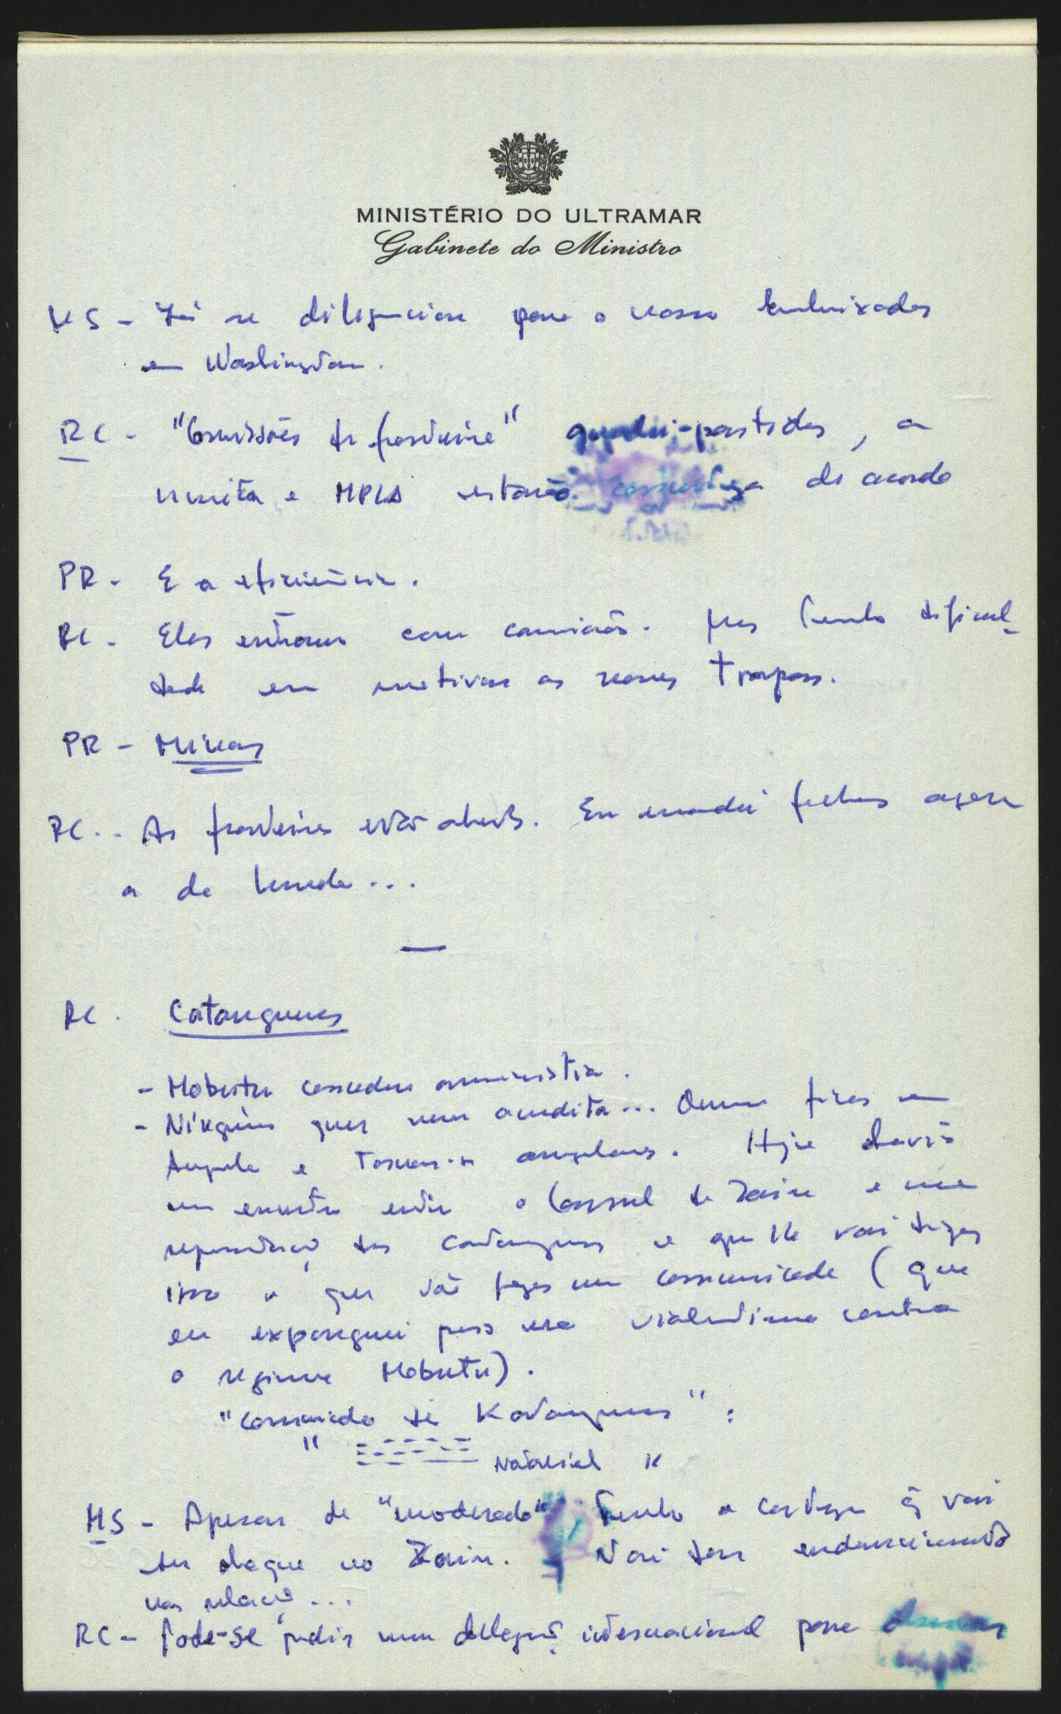 MINISTÉRIO DO ULTRAMAR
Gabinete do Ministro
MS - Já se para o nosso Embaixador
em Washington.
RC - "Comissões de fronteira" quadri-partidas, a
Unita e MPLA estarão de acordo
PR - E a eficiência.
RC - Elas entram com convicção. Mas tenho dificul-
dade em motivar as nossas tropas.
PR - Minas
RC - As fronteiras estão abertas. Eu mandei fechar agora
a de Luanda...
—
RC - Catangueses
- Mobutu concedeu amnistia.
- Ninguém quer nem acredita... Querem ficar em
Angola e angolanos. Hoje haverá
um encontro entre o Consul do Zaire e uma
representação dos catangueses e que lhe vai dizer
isso e que vão fazer um comunicado (que
eu expurguei pois era violentíssimo contra
o regime Mobutu).
"Comunicado de Katangueses":
" Material "
MS - Apesar de "moderado" tenho a certeza q vai
ter choque no Zaire. Vai ter endurecimento
nas relações...
RC - Pode-se pedir uma delegação internacional para